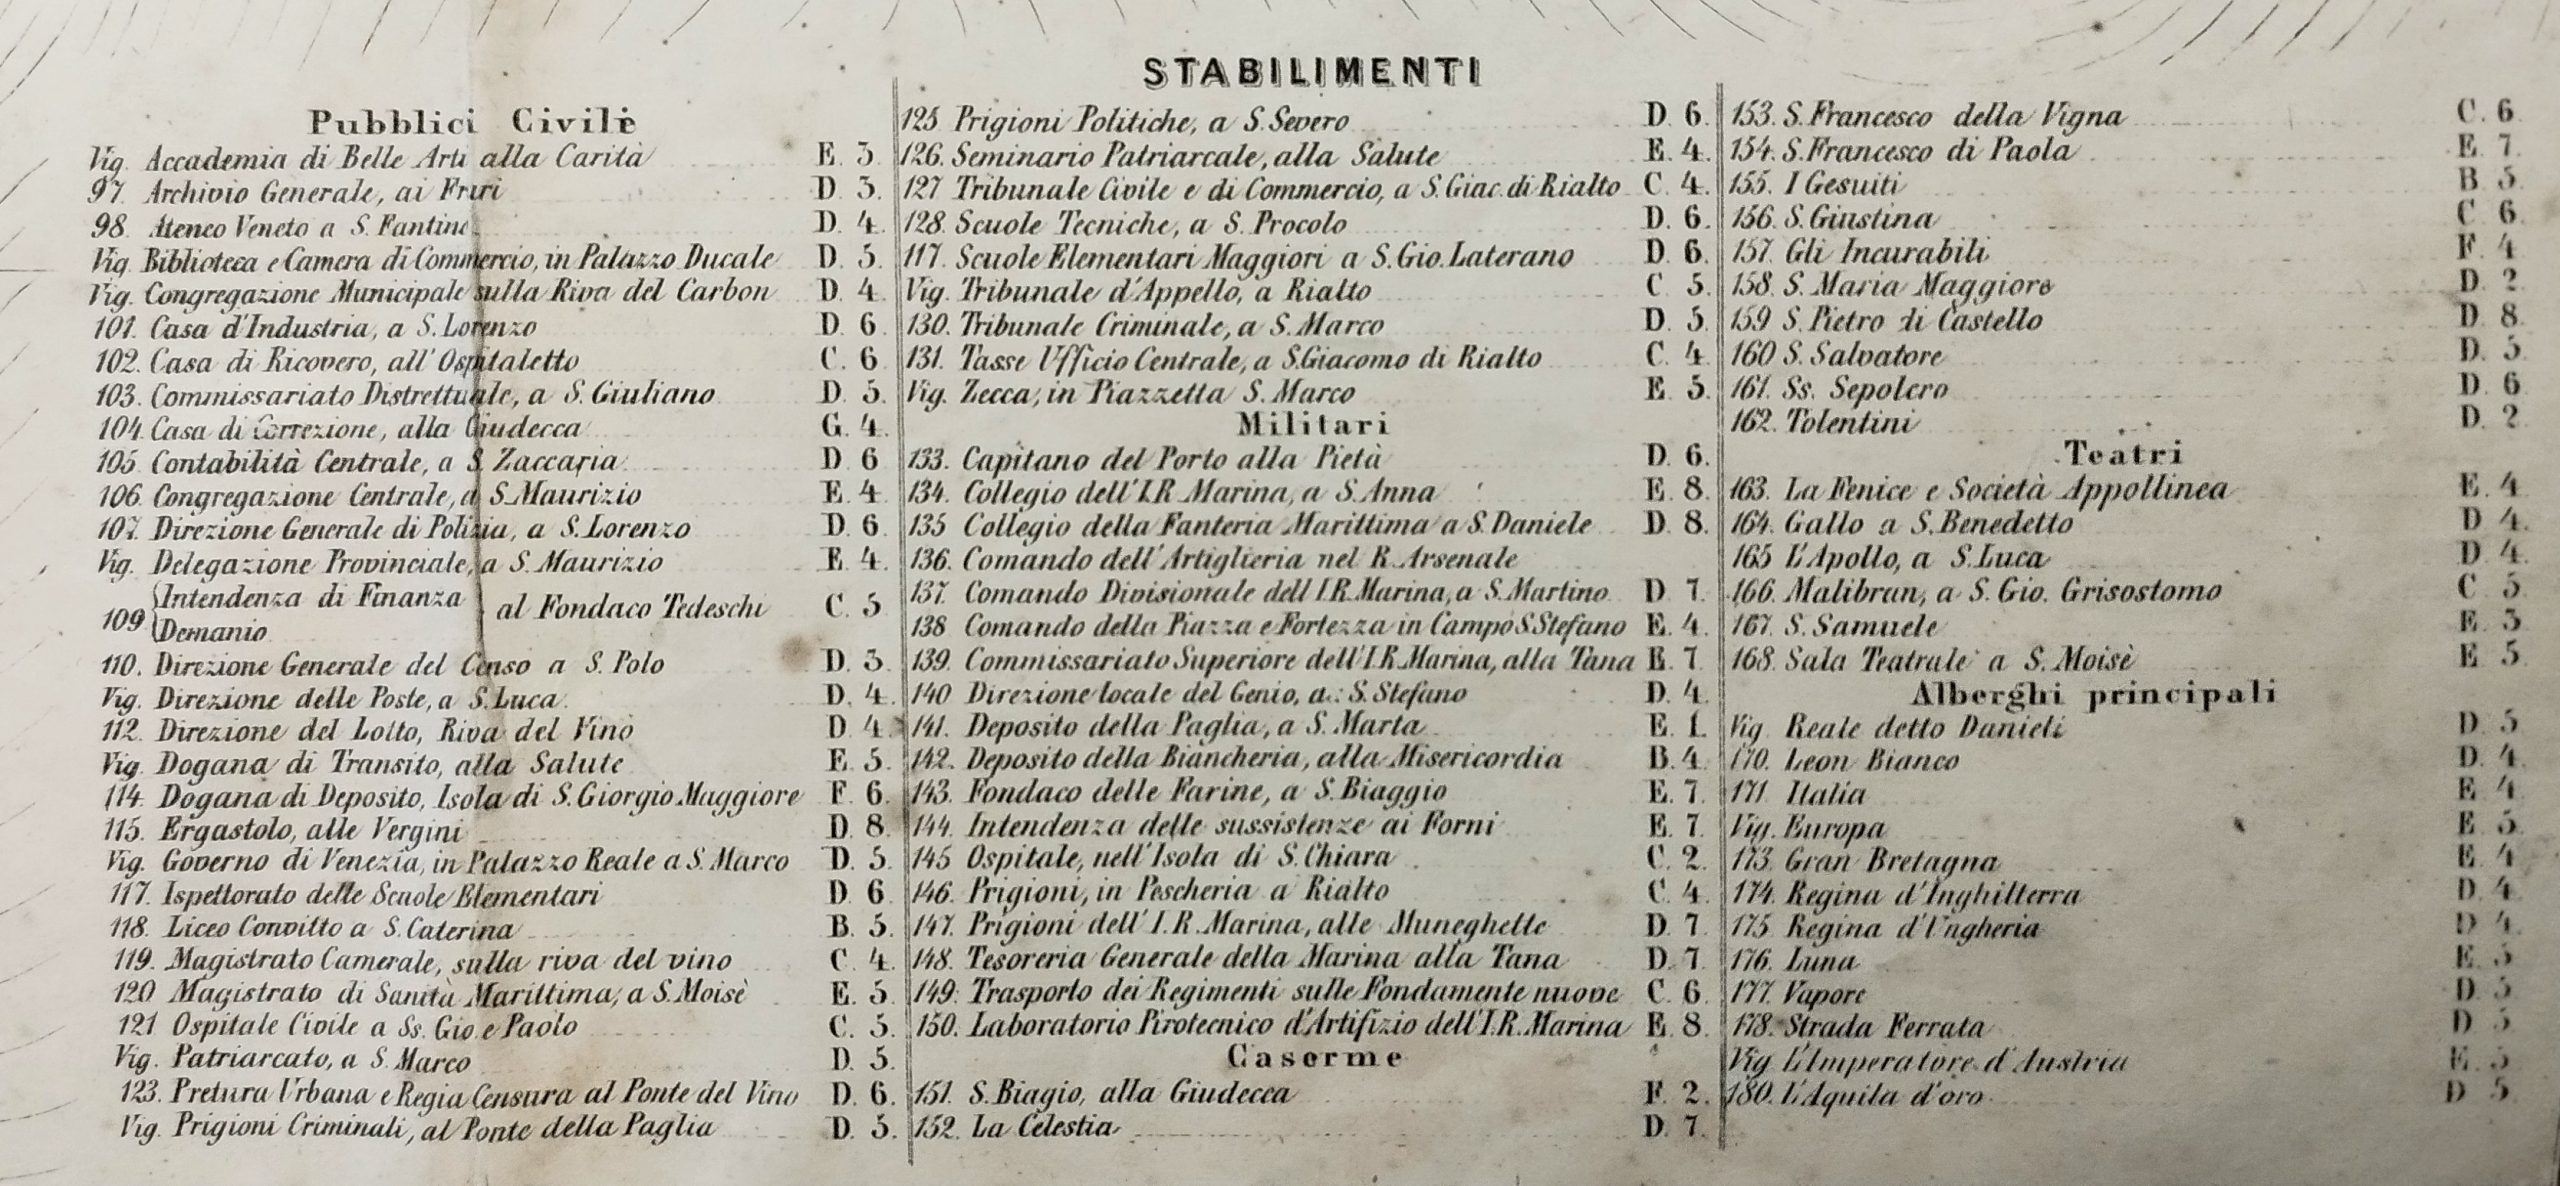 STABILIMENTI
Pubblici Civili
Vig. Accademia di Belle Arti alla Carità E. 3.
97. Archivio Generale, ai Frari D. 3.
98. Ateneo Veneto a S. Fantino D. 4.
Vig. Biblioteca e Camera di Commercio, in Palazzo Ducale D. 5.
Vig. Congregazione Municipale sulla Riva del Carbon D. 4.
101. Casa d'Industria, a S. Lorenzo D. 6.
102. Casa di Ricovero, all'Ospitaletto C. 6
103. Commissariato Distrettuale, a S. Giuliano D. 5.
104. Casa di Correzione, alla Giudecca G. 4.
105. Contabilità Centrale, a S. Zaccaria D 6
106. Congregazione Centrale, a S. Maurizio E. 4
107. Direzione Generale di Polizia, a S. Lorenzo D. 6.
Vig. Delegazione Provinciale, a S. Maurizio E. 4.
109 Intendenza di Finanza
Demanio al Fondaco Tedeschi C. 5
110. Direzione Generale del Censo a S. Polo D. 3.
Vig. Direzione delle Poste, a S. Luca D. 4.
112. Direzione del Lotto, Riva del Vino D 4
Vig. Dogana di Transito, alla Salute E. 5.
114. Dogana di Deposito, Isola di S. Giorgio Maggiore F. 6.
115. Ergastolo, alle Vergini D. 8
Vig. Governo di Venezia, in Palazzo Reale a S. Marco D. 5.
117. Ispettorato delle Scuole Elementari D 6
118. Liceo Convitto a S. Caterina B. 5.
119. Magistrato Camerale, sulla riva del vino C. 4.
120. Magistrato di Sanità Marittima, a S. Moisè E. 5.
121 Ospitale Civile a Ss. Gio. e Paolo C. 5.
Vig. Patriarcato, a S. Marco D. 5.
123. Pretura Urbana e Regia Censura al Ponte del Vino D. 6.
Vig. Prigioni Criminali, al Ponte della Paglia D. 5.
125. Prigioni Politiche, a S. Severo D. 6.
126. Seminario Patriarcale, alla Salute E. 4.
127 Tribunale Civile e di Commercio, a S. Giac. di Rialto C. 4.
128. Scuole Tecniche, a S. Procolo D. 6.
117. Scuole Elementari Maggiori a S. Gio. Laterano D. 6.
Vig. Tribunale d'Appello, a Rialto C. 5.
130. Tribunale Criminale, a S. Marco D. 5.
131. Tasse Ufficio Centrale, a S. Giacomo di Rialto C. 4
Vig. Zecca, in Piazzetta S. Marco E. 5.
Militari
133. Capitano del Porto alla Pietà D. 6.
134. Collegio dell'I.R. Marina, a S. Anna E. 8.
135 Collegio della Fanteria Marittima a S. Daniele D. 8.
136. Comando dell'Artiglieria nel R. Arsenale
137. Comando Divisionale dell'I.R. Marina, a S. Martino D 7.
138 Comando della Piazza e Fortezza in Campo S. Stefano E. 4.
139. Commissariato Superiore dell'I.R. Marina, alla Tana E. 7
140 Direzione locale del Genio, a S. Stefano D. 4.
141. Deposito della Paglia, a S. Marta E. 1.
142. Deposito della Biancheria, alla Misericordia B. 4
143. Fondaco delle Farine, a S. Biaggio E. 7.
144. Intendenza delle sussistenze ai Forni E. 7.
145 Ospitale, nell'Isola di S. Chiara C. 2.
146. Prigioni, in Pescheria a Rialto C. 4.
147. Prigioni dell'I.R. Marina, alle Muneghette D. 7
148. Tesoreria Generale della Marina alla Tana D. 7
149. Trasporto dei Regimenti sulle Fondamente nuove C. 6
150. Laboratorio Pirotecnico d'Artifizio dell'I.R. Marina E. 8
Caserme
151. S. Biagio, alla Giudecca F. 2.
152. La Celestia D. 7.
153. S. Francesco della Vigna C. 6
154. S. Francesco di Paola E. 7.
155. I Gesuiti B 5.
156. S. Giustina C 6
157. Gli Incurabili F. 4
158. S. Maria Maggiore D. 2
159 S. Pietro di Castello D. 8.
160 S. Salvatore D. 5
161. Ss. Sepolcro D. 6
162. Tolentini D. 2
Teatri
163. La Fenice e Società Appollinea E. 4
164. Gallo a S. Benedetto D 4.
165 L'Apollo, a S. Luca D. 4.
166. Malibran, a S. Gio. Grisostomo C 5.
167. S. Samuele E. 3
168. Sala Teatrale a S. Moisè E 5
Alberghi principali
Vig Reale detto Danieli D. 5
170. Leon Bianco D. 4.
171. Italia E 4
Vig. Europa E 5.
173. Gran Bretagna E. 4
174. Regina d'Inghilterra D. 4.
175. Regina d'Ungheria D 4.
176. Luna E. 5
177. Vapore D. 5
178. Strada Ferrata D 5
Vig L'Imperatore d'Austria E. 5
180. L'Aquila d'oro D 5